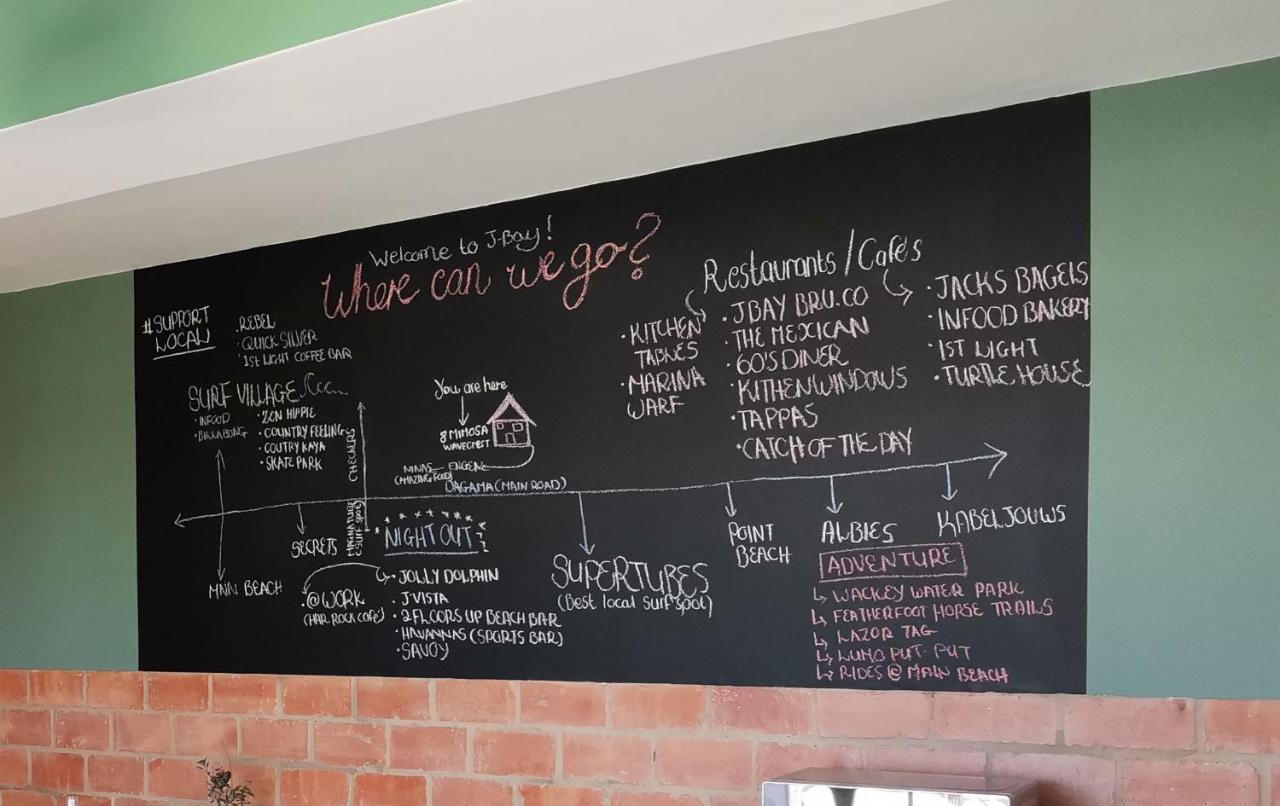 Welcome to J-Bay!
Where can we go?
#SUPPORT
LOCAL
· REBEL
· QUICK SILVER
· 1ST LIGHT COFFEE BAR
SURF VILLAGE
· INFOOD
· BILLABONG
· ZON HIPPIE
· COUNTRY FEELING
· COUTRY KAYA
· SKATE PARK
CHECKERS
MAGNATUBES
(SURF SPOT)
You are here
8 MIMOSA
WAVECREST
NINAS
(AMAZING FOOD)
ENGINE
DAGAMA (MAIN ROAD)
Restaurants / Cafés
· KITCHEN
TABLES
· MARINA
WARF
· JBAY BRU.CO
· THE MEXICAN
· 60'S DINER
· KITHEN WINDOWS
· TAPPAS
· CATCH OF THE DAY
· JACKS BAGELS
· INFOOD BAKERY
· 1ST LIGHT
· TURTLE HOUSE
MAIN BEACH
SECRETS
NIGHT OUT
· @WORK
(HAR ROCK CAFE)
· JOLLY DOLPHIN
· J-VISTA
· 2 FLOORS UP BEACH BAR
· HAVANNAS (SPORTS BAR)
· SAVOY
SUPERTUBES
(Best local surf spot)
POINT
BEACH
ALBIES
KABELJOUWS
ADVENTURE
↳ WACKEY WATER PARK
↳ FEATHERFOOT HORSE TRAILS
↳ LAZOR TAG
↳ PUT-PUT
↳ RIDES @ MAIN BEACH